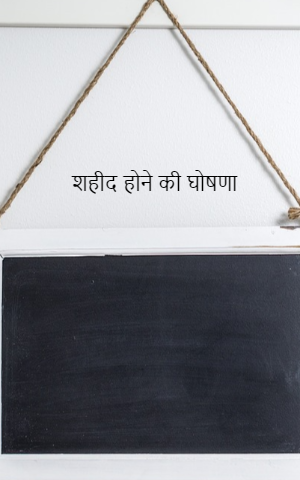 शहीद होने की घोषणा